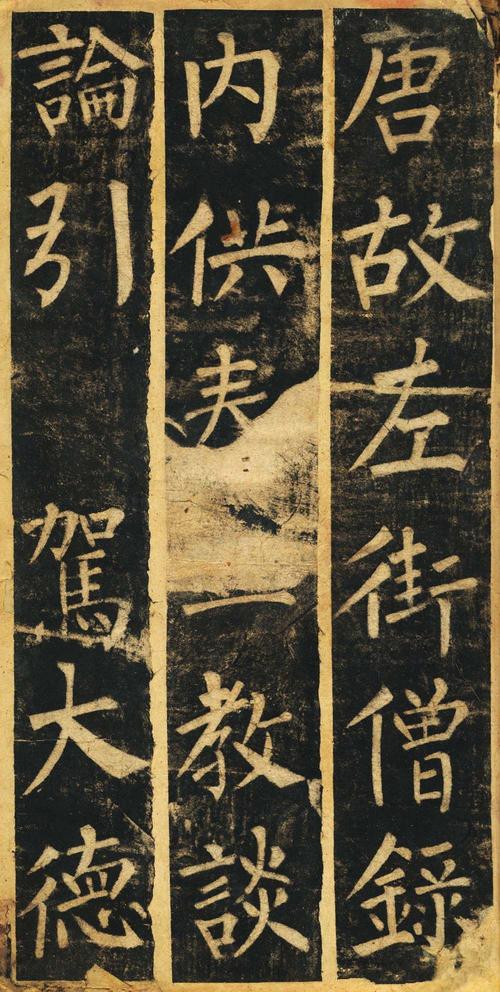 唐故左街僧錄
内供奉教談
論引駕大德